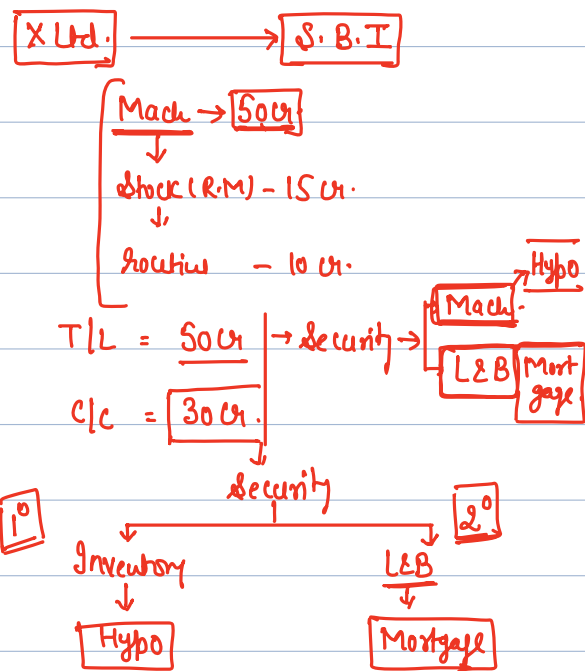 X Ltd. → S.B.I
Mach → 50Cr
Stock (R.M) - 15 Cr.
Routine - 10 Cr.
Hypo
T/L = 50Cr → Security → Mach.
L&B Mortgage
C/C = 30Cr.
Security
1° 2°
Inventory L&B
Hypo Mortgage